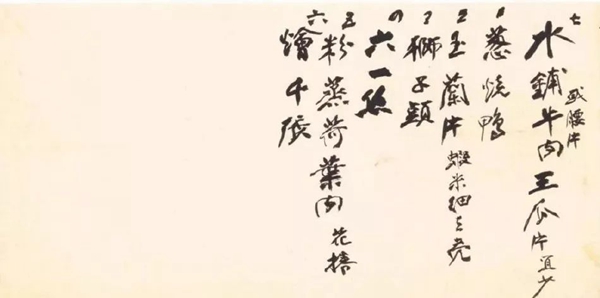 或腰片
七 水鋪牛肉 王瓜片宜少
1 葱燒鴨
2 玉蘭片 蝦米細
3 獅子頭
4 六一絲
五 粉蒸荷葉肉 花
六 燴千張